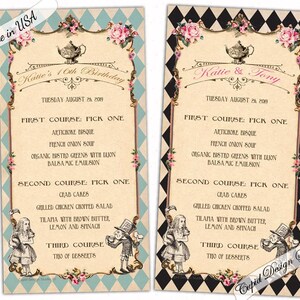 Made in USA
Katie's 16th Birthday
TUESDAY AUGUST 29, 2019
FIRST COURSE: PICK ONE
ARTICHOKE BISQUE
FRENCH ONION SOUP
ORGANIC BISTRO GREENS WITH DIJON
BALSAMIC EMULSION
SECOND COURSE: PICK ONE
CRAB CAKES
GRILLED CHICKEN CHOPPED SALAD
TILAPIA WITH BROWN BUTTER,
LEMON AND SPINACH
THIRD COURSE:
TRIO OF DESSERTS
Katie & Tony
TUESDAY AUGUST 29, 2019
FIRST COURSE: PICK ONE
ARTICHOKE BISQUE
FRENCH ONION SOUP
ORGANIC BISTRO GREENS WITH DIJON
BALSAMIC EMULSION
SECOND COURSE: PICK ONE
CRAB CAKES
GRILLED CHICKEN CHOPPED SALAD
TILAPIA WITH BROWN BUTTER,
LEMON AND SPINACH
THIRD COURSE:
TRIO OF DESSERTS
Cupid Design